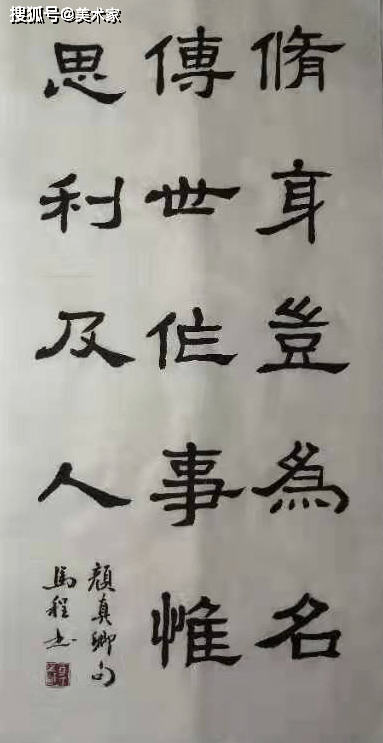 搜狐号@美术家
脩身豈為名
傳世作事惟
思利及人
顏真卿句
馬程书